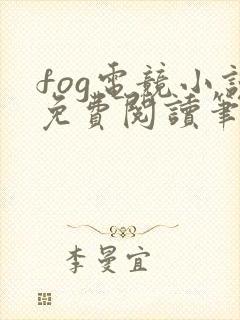 fog電競小說
免費閱讀筆
李曼宜